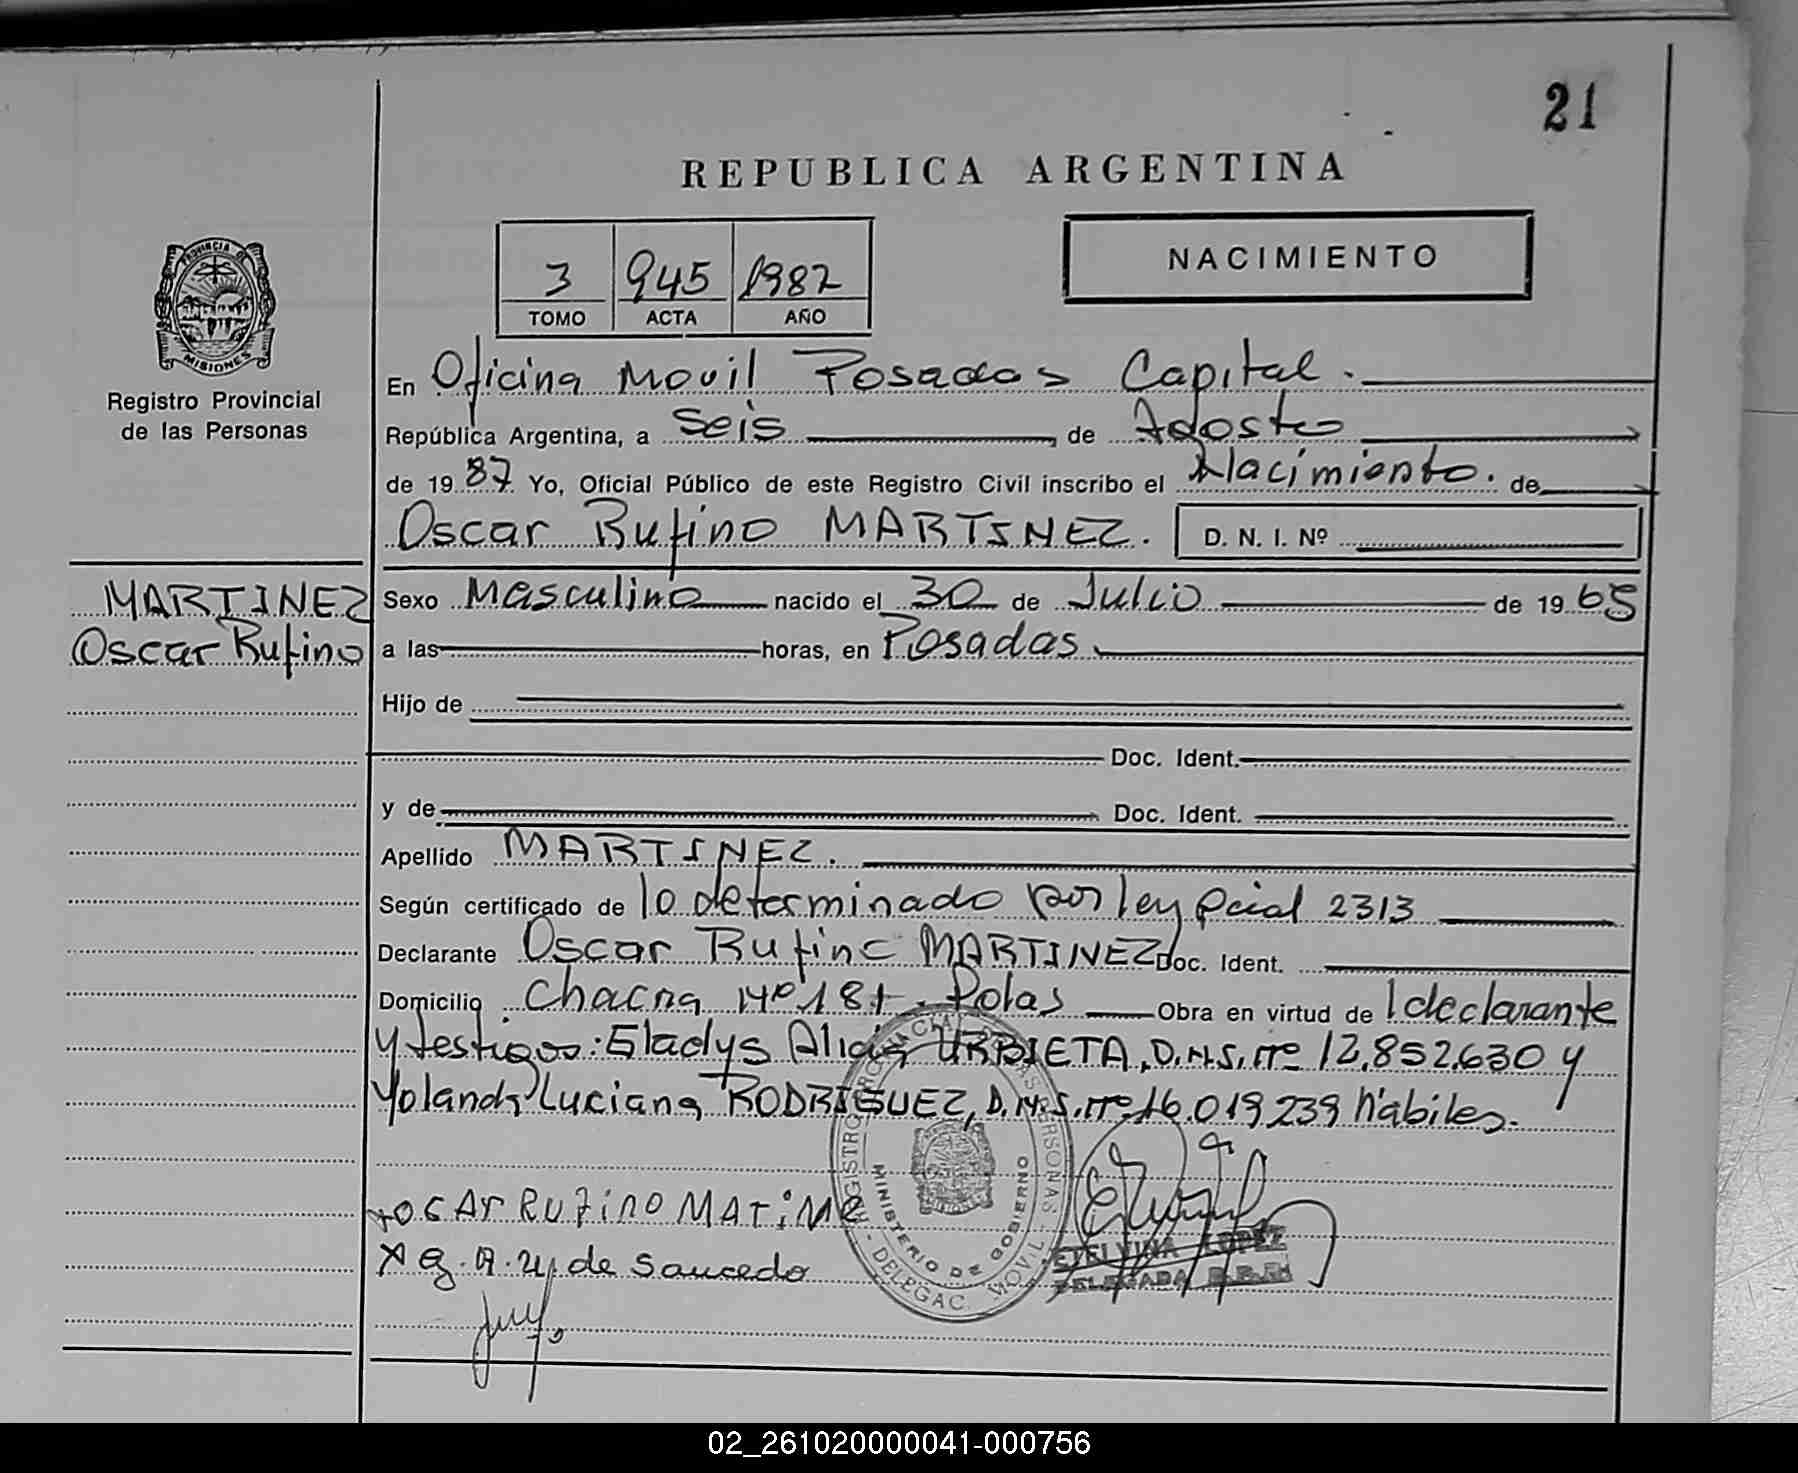 21
REPUBLICA ARGENTINA
3 945 1987
TOMO ACTA AÑO
NACIMIENTO
PROVINCIA DE
MISIONES
Registro Provincial
de las Personas
MARTINEZ
Oscar Rufino
En Oficina Movil Posadas Capital.
República Argentina, a seis de Agosto
de 19 87 Yo, Oficial Público de este Registro Civil inscribo el Nacimiento. de
Oscar Rufino MARTINEZ. D. N. I. Nº
Sexo Masculino nacido el 30 de Julio de 19 65
a las horas, en Posadas
Hijo de
Doc. Ident.
y de Doc. Ident.
Apellido MARTINEZ.
Según certificado de lo determinado por ley pcial 2313
Declarante Oscar Rufino MARTINEZ Doc. Ident.
Domicilio Chacra Nº 181. Pdas Obra en virtud de l declarante
y testigos: Gladys Alicia URBIETA, D.N.I. nº 12.852.630 y
Yolanda Luciana RODRIGUEZ, D.N.I. nº 16.019.239 hábiles.
OSCAR RUFINO MATINE
G. A. U. de Saucedo
REGISTRO PROVINCIAL DE LAS PERSONAS - DELEGAC. MOVIL -
MINISTERIO DE GOBIERNO
ETELVINA LOPEZ
DELEGADA
02_261020000041-000756